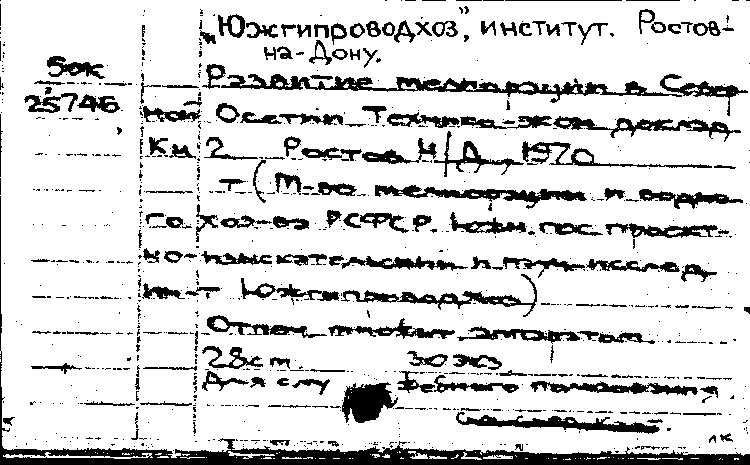 „Южгипроводхоз”, институт. Ростов-
на-Дону.
5ок
25746
Развитие мелиорации в Север-
ной Осетии Технико-экон доклад
Кн 2 Ростов Н/Д, 1970
т (М-во мелиорации и водно-
го хоз-ва РСФСР. Южн. гос проект-
но-изыскательский и науч-исслед
ин-т Южгипроводхоз)
Отпеч. множит. аппаратом.
28см. 30 экз.
Для слу жебного пользования.
лк